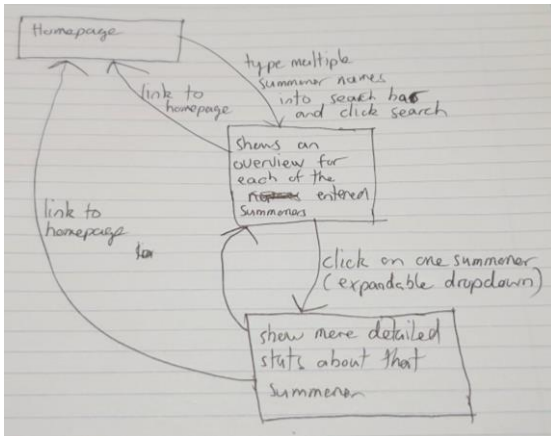 Homepage
type multiple
summoner names
into search bar
and click search
link to
homepage
shows an
overview for
each of the
entered
summoners
link to
homepage
click on one summoner
(expandable dropdown)
show more detailed
stats about that
summoner